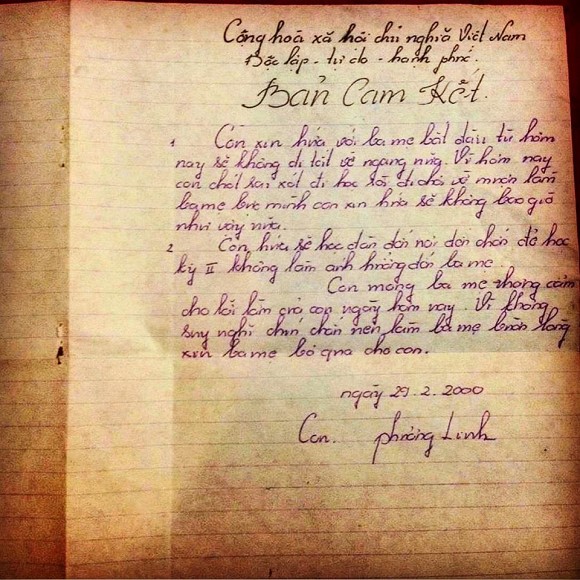 Cộng hoà xã hội chủ nghĩa Việt Nam
Độc lập - tự do - hạnh phúc.
Bản Cam Kết.
1 Con xin hứa với ba mẹ bắt đầu từ hôm
nay sẽ không đi tắt về ngang nữa. Vì hôm nay
con chót sai xót đi học rồi đi chơi về muộn làm
ba mẹ bực mình con xin hứa sẽ không bao giờ
như vậy nữa.
2 Con hứa sẽ học đàn đời nói đời chán để học
kỳ II không làm ảnh hưởng đối ba mẹ.
Con mong ba mẹ thông cảm
cho lỗi lầm của con ngày hôm nay. Vì không
suy nghĩ chín chắn nên làm ba mẹ buồn lòng
xin ba mẹ bỏ qua cho con.
ngày 29.2.2000
Con. phương Linh